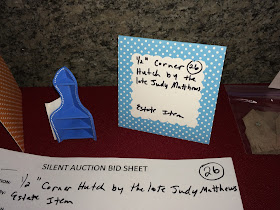 1/2" Corner (26)
Hutch by the
late Judy Matthews
Estate Item
SILENT AUCTION BID SHEET
26
1/2" Corner Hutch by the late Judy Matthews
Estate Item